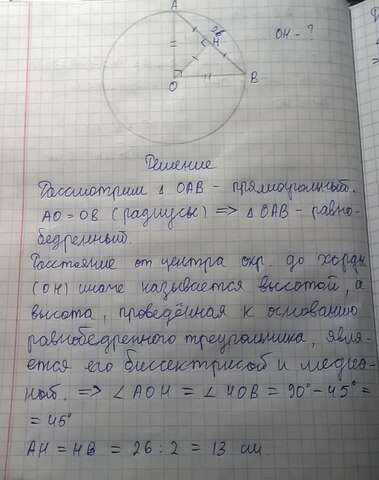 A
26
H
OH - ?
O
B
Решение
Рассмотрим △ OAB - прямоугольный.
AO = OB (радиусы) => △ OAB - равно-
бедренный.
Расстояние от центра окр. до хорды
(OH) иначе называется высотой, а
высота, проведённая к основанию
равнобедренного треугольника, явля-
ется его биссектрисой и медиа-
ной. => ∠AOH = ∠HOB = 90° - 45° =
= 45°
AH = HB = 26 : 2 = 13 см